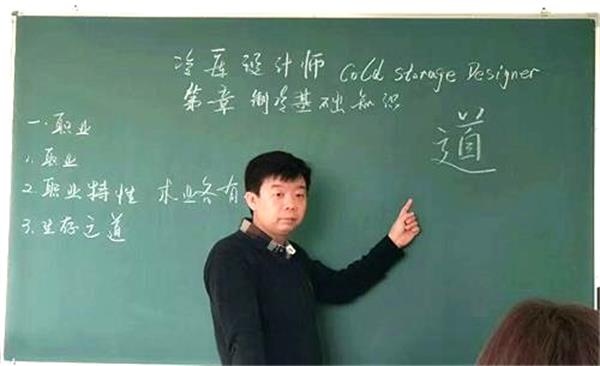 冷库设计师 Cold Storage Designer
第一章 制冷基础知识
道
一、职业
1. 职业
2. 职业特性 术业各有
3. 生存之道